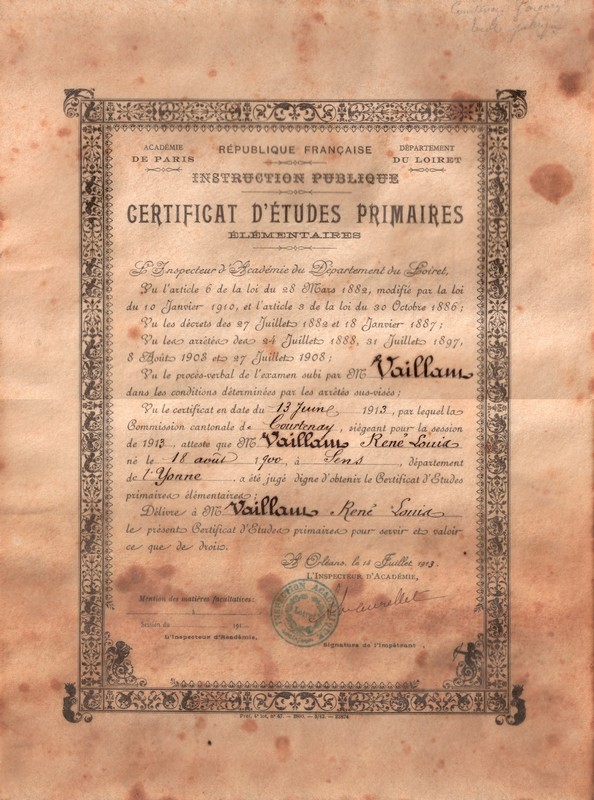 ACADÉMIE
DE PARIS
RÉPUBLIQUE FRANÇAISE
DÉPARTEMENT
DU LOIRET
INSTRUCTION PUBLIQUE
CERTIFICAT D'ÉTUDES PRIMAIRES
ÉLÉMENTAIRES
L'Inspecteur d'Académie du Département du Loiret,
Vu l'article 6 de la loi du 28 Mars 1882, modifié par la loi
du 10 Janvier 1910, et l'article 3 de la loi du 30 Octobre 1886;
Vu les décrets des 27 Juillet 1882 et 18 Janvier 1887;
Vu les arrêtés des 24 Juillet 1888, 31 Juillet 1897,
8 Août 1903 et 27 Juillet 1908;
Vu le procès-verbal de l'examen subi par M Vaillant
dans les conditions déterminées par les arrêtés sus-visés;
Vu le certificat en date du 13 Juin 1913, par lequel la
Commission cantonale de Courtenay, siégeant pour la session
de 1913, atteste que M Vaillant René Louis
né le 18 août 1900, à Sens, département
de l'Yonne, a été jugé digne d'obtenir le Certificat d'Études
primaires élémentaires;
Délivre à M Vaillant René Louis
le présent Certificat d'Études primaires pour servir et valoir
ce que de droit.
A Orléans, le Juillet 1913.
L'INSPECTEUR D'ACADÉMIE,
Mention des matières facultatives:
Session du 191
L'Inspecteur d'Académie,
Signature de l'Impétrant